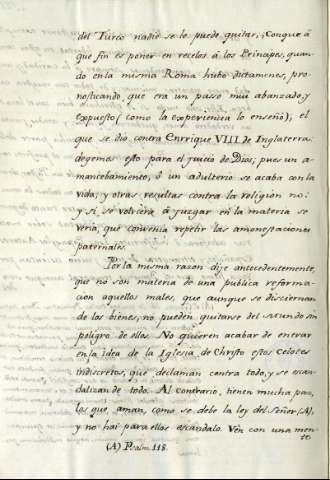 del Turco nadie se lo puede quitar; ¿Conque á
que fin es poner en recelos á los Principes, quan-
do en la misma Roma hubo dictamenes, pro-
nosticando que era un passo mui abanzado, y
expuesto (como la experiencia lo enseñó), el
que se dio contra Enrrique VIII de Inglaterra:
degemos esto para el juicio de Dios; pues un a-
mancebamiento, ô un adulterio se acaba con la
vida, y otras resultas contra la religión no:
y si se volviera á juzgar en la materia se
vería, que convenia repetir las amonestaciones
paternales.
Por la misma razon dije antecedentemente,
que no son materia de una publica reforma-
cion aquellos males, que aunque se disciernan
de los bienes, no pueden quitarse del Mundo sin
peligro de ellos. No quieren acabar de entrar
en la idea de la Iglesia de Christo estos Celosos
indiscretos, que declaman contra todo, y se escan-
dalizan de todo. Al contrario, tienen mucha paz,
los que aman, como se debe la ley del Señor (A),
y no hai para ellos escandalo. Ven con una men-
te
(A) Psalm. 118.